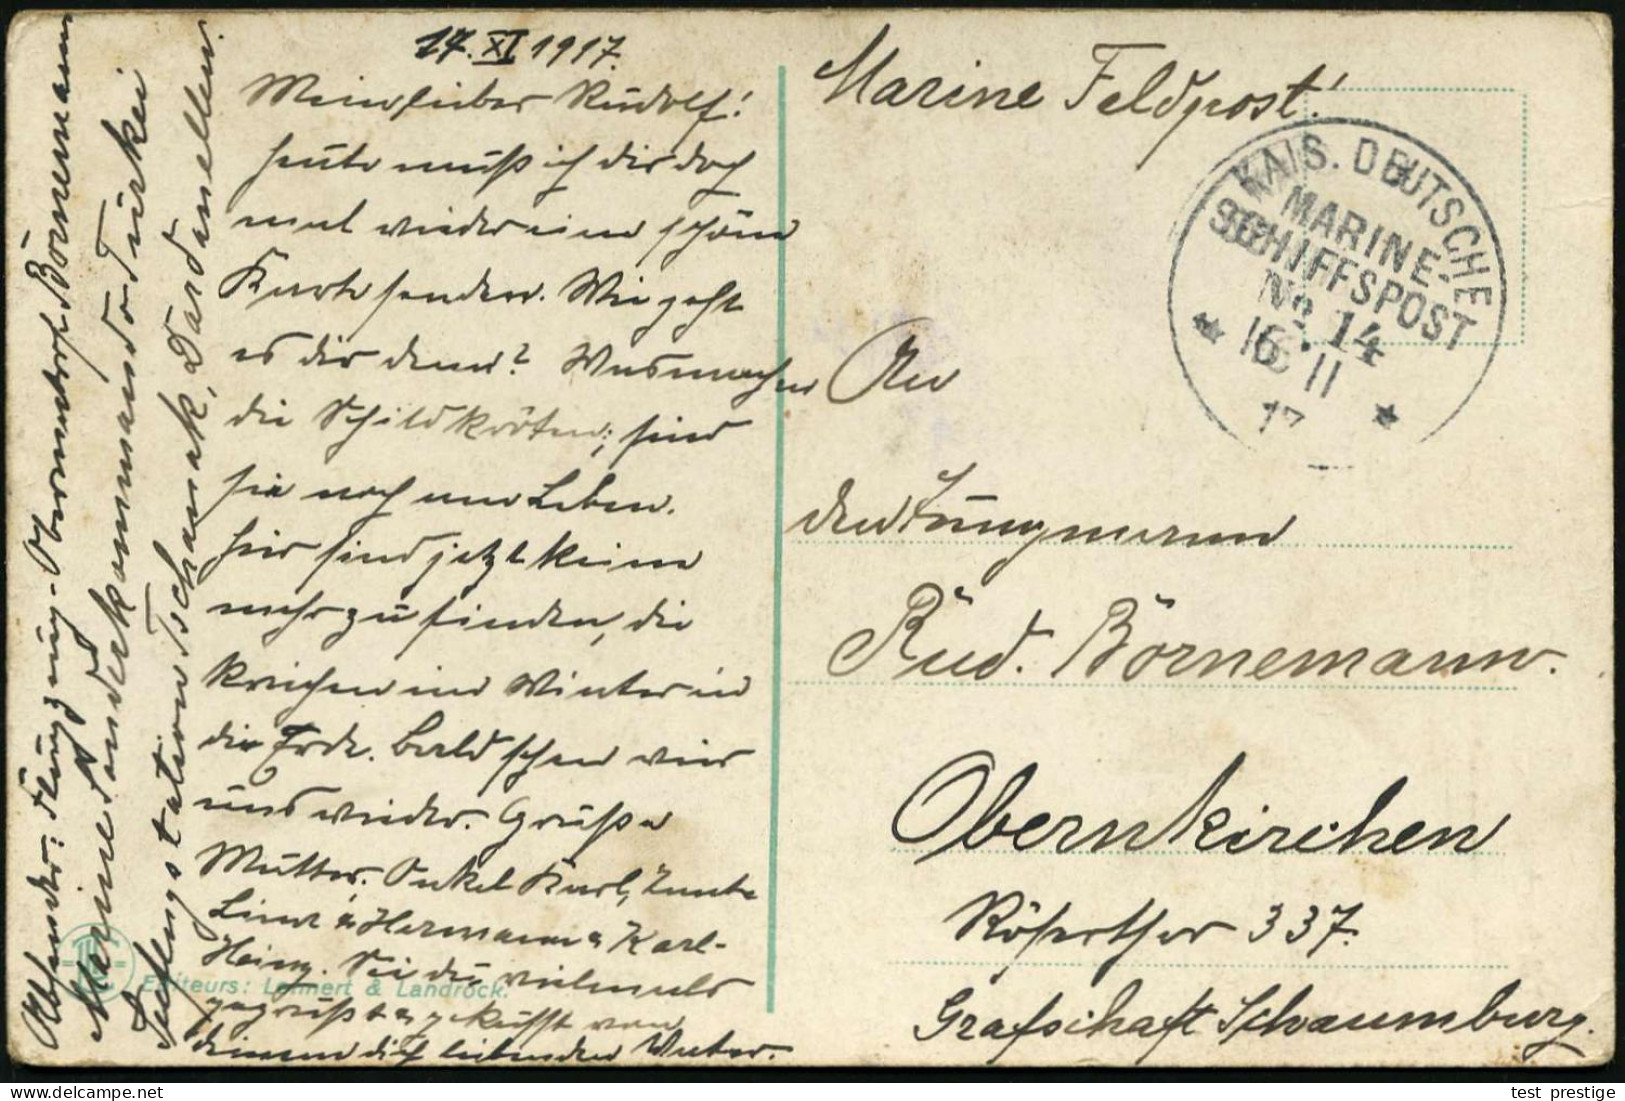 17. XI 1917.
Mein lieber Rudolf!
heute muß ich dir doch
mal wieder eine schöne
Karte senden. Wie geht
es dir denn? Was machen
die Schildkröten, sind
sie noch am Leben.
hier sind jetzt keine
mehr zu finden, die
kriechen im Winter in
die Erde. Bald sehen wir
uns wieder. Grüße
Mutter. Onkel Karl, Tante
Line u Hermann u Karl-
Heinz. Sei du vielmals
gegrüßt u geküsst von
deinem dich liebenden Vater.
Absender: Flugzeug-Obermatrose Bornemann
Marine Sonderkommando Türkei
Seeflugstation Tschanak, Dardanellen.
Editeurs: Lehnert & Landrock.
Marine Feldpost!
KAIS. DEUTSCHE
MARINE-
SCHIFFSPOST
No. 14
16 11
17
An
den Jungmann
Rud. Börnemann.
Obernkirchen
Röserther 337.
Grafschaft Schaumburg.
test prestige